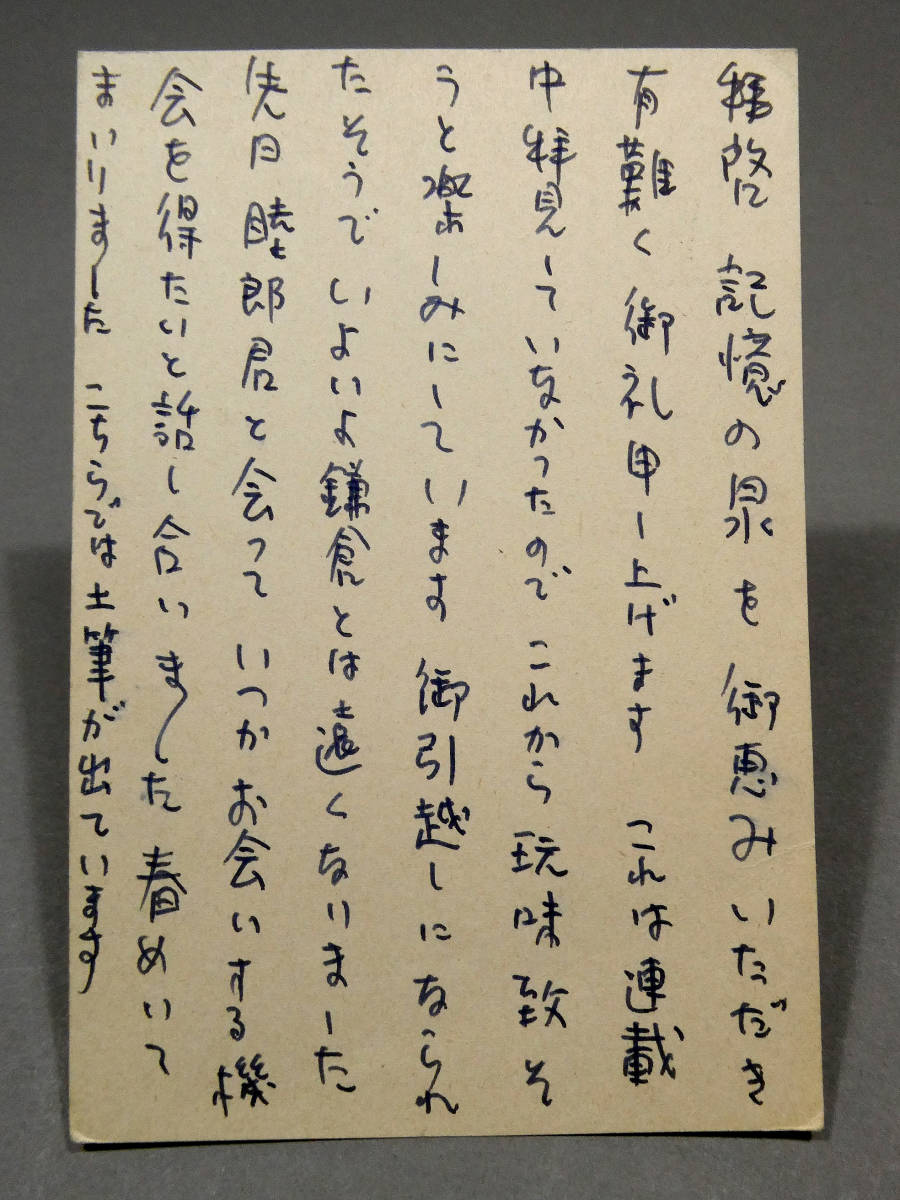 拝啓 記憶の泉を御恵みいただき
有難く御礼申し上げます これは連載
中拝見していなかったので これから玩味致そ
うと楽しみにしています 御引越しになられ
たそうでいよいよ鎌倉とは遠くなりました
先日 睦郎君と会って いつかお会いする機
会を得たいと話し合いました 春めいて
まいりました こちらでは土筆が出ています